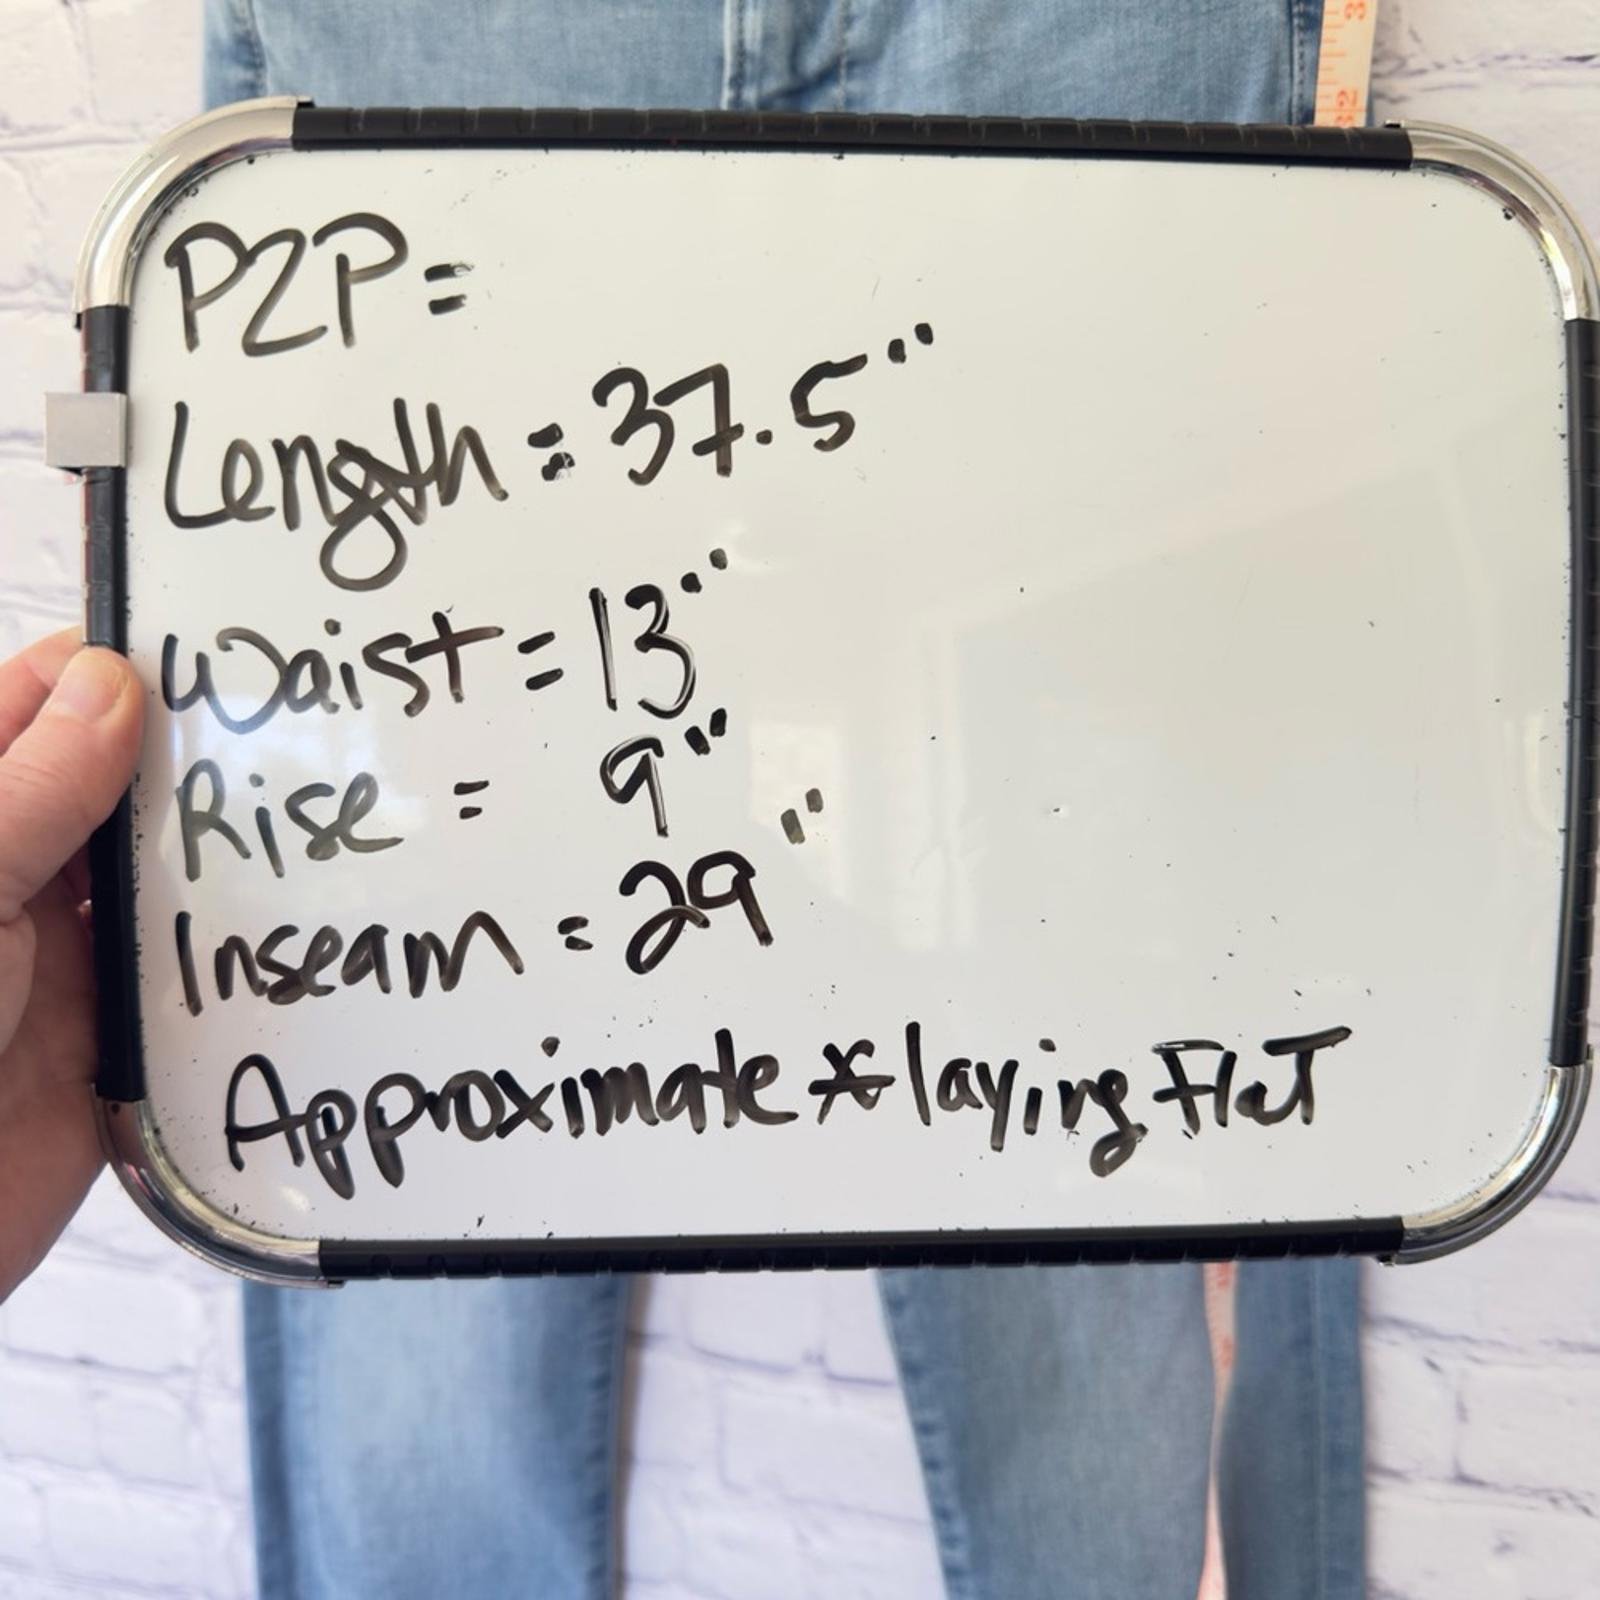 P2P =
Length = 37.5"
Waist = 13"
Rise = 9"
Inseam = 29"
Approximate * laying Flat